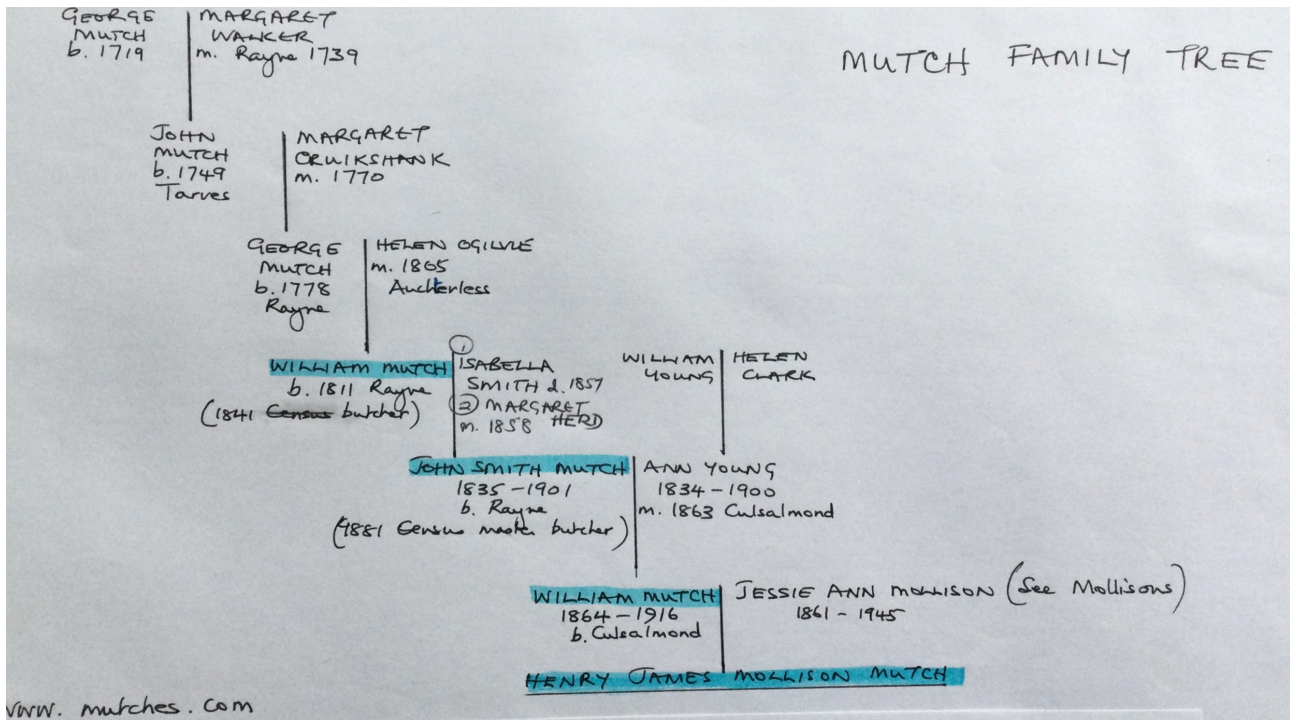 MUTCH FAMILY TREE
GEORGE
MUTCH
b. 1719
MARGARET
WALKER
m. Rayne 1739
JOHN
MUTCH
b. 1749
Tarves
MARGARET
CRUIKSHANK
m. 1770
GEORGE
MUTCH
b. 1778
Rayne
HELEN OGILVIE
m. 1865
Auchterless
WILLIAM MUTCH
b. 1811 Rayne
(1841 Census butcher)
① ISABELLA
SMITH d. 1857
② MARGARET
HERD
m. 1858
WILLIAM
YOUNG
HELEN
CLARK
JOHN SMITH MUTCH
1835 - 1901
b. Rayne
(1881 Census master butcher)
ANN YOUNG
1834 - 1900
m. 1863 Culsalmond
WILLIAM MUTCH
1864 - 1916
b. Culsalmond
JESSIE ANN MOLLISON (See Mollisons)
1861 - 1945
HENRY JAMES MOLLISON MUTCH
www. mutches. com